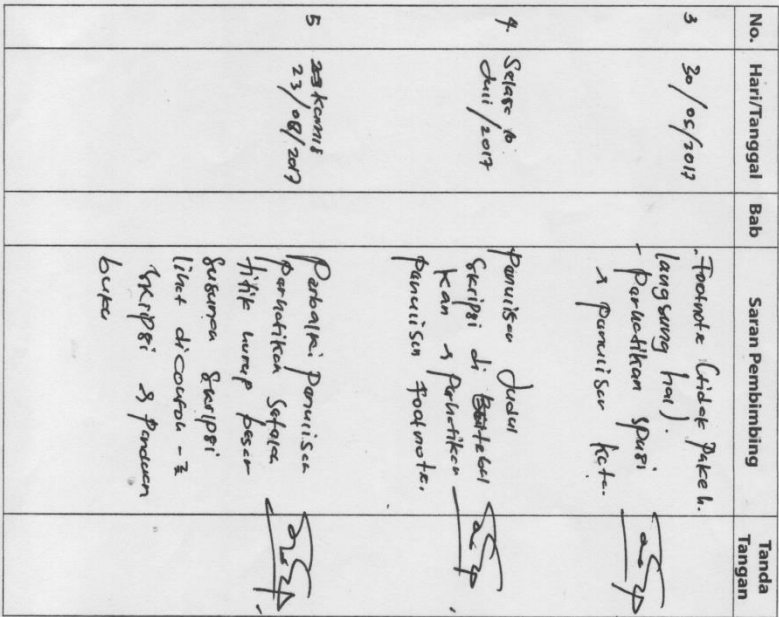 No. Hari/Tanggal Bab Saran Pembimbing Tanda Tangan
3 30/05/2017 - Footnote (tidak pakek
langsung hal).
- Perhatikan spasi
& penulisan kata.
4 Selasa 10 Juli/2017 Penulisan Judul
skripsi di tebal
kan & perhatikan
penulisan footnote.
5 Kamis 23/08/2017 Perbaiki penulisan
perhatikan setelah
titik hurup besar
susunan skripsi
lihat di contoh-2
skripsi & panduan
buku